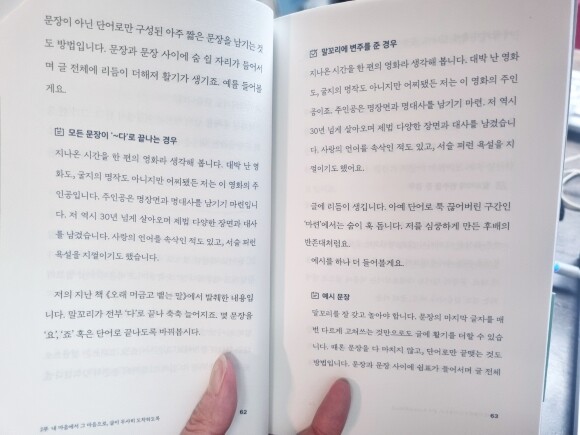 문장이 아닌 단어로만 구성된 아주 짧은 문장을 남기는 것
도 방법입니다. 문장과 문장 사이에 숨 쉴 자리가 들어서
며 글 전체에 리듬이 더해져 활기가 생기죠. 예를 들어볼
게요.
모든 문장이 '~다'로 끝나는 경우
지나온 시간을 한 편의 영화라 생각해 봅니다. 대박 난 영
화도, 굴지의 명작도 아니지만 어찌됐든 저는 이 영화의 주
인공입니다. 주인공은 명장면과 명대사를 남기기 마련입니
다. 저 역시 30년 넘게 살아오며 제법 다양한 장면과 대사
를 남겼습니다. 사랑의 언어를 속삭인 적도 있고, 서슬 퍼런
욕설을 지껄이기도 했습니다.
저의 지난 책 《오래 머금고 뱉는 말》에서 발췌한 내용입니
다. 말꼬리가 전부 '다'로 끝나 축축 늘어지죠. 몇 문장을
'요', '죠' 혹은 단어로 끝나도록 바꿔봅시다.
2부. 내 마음에서 그 마음으로, 글이 무사히 도착하도록
62
말꼬리에 변주를 준 경우
지나온 시간을 한 편의 영화라 생각해 봅니다. 대박 난 영화
도, 굴지의 명작도 아니지만 어찌됐든 저는 이 영화의 주인
공이죠. 주인공은 명장면과 명대사를 남기기 마련. 저 역시
30년 넘게 살아오며 제법 다양한 장면과 대사를 남겼습니
다. 사랑의 언어를 속삭인 적도 있고, 서슬 퍼런 욕설을 지
껄이기도 했어요.
글에 리듬이 생깁니다. 아예 단어로 툭 끊어버린 구간인
'마련'에서는 숨이 훅 돕니다. 저를 심쿵하게 만든 후배의
반존대처럼요.
예시를 하나 더 들어볼게요.
예시 문장
말꼬리를 잘 갖고 놀아야 합니다. 문장의 마지막 글자를 매
번 다르게 고쳐쓰는 것만으로도 글에 활기를 더할 수 있습
니다. 매혼 문장을 다 마치지 않고, 단어로만 끝맺는 것도
방법입니다. 문장과 문장 사이에 쉼표가 들어서며 글 전체
63